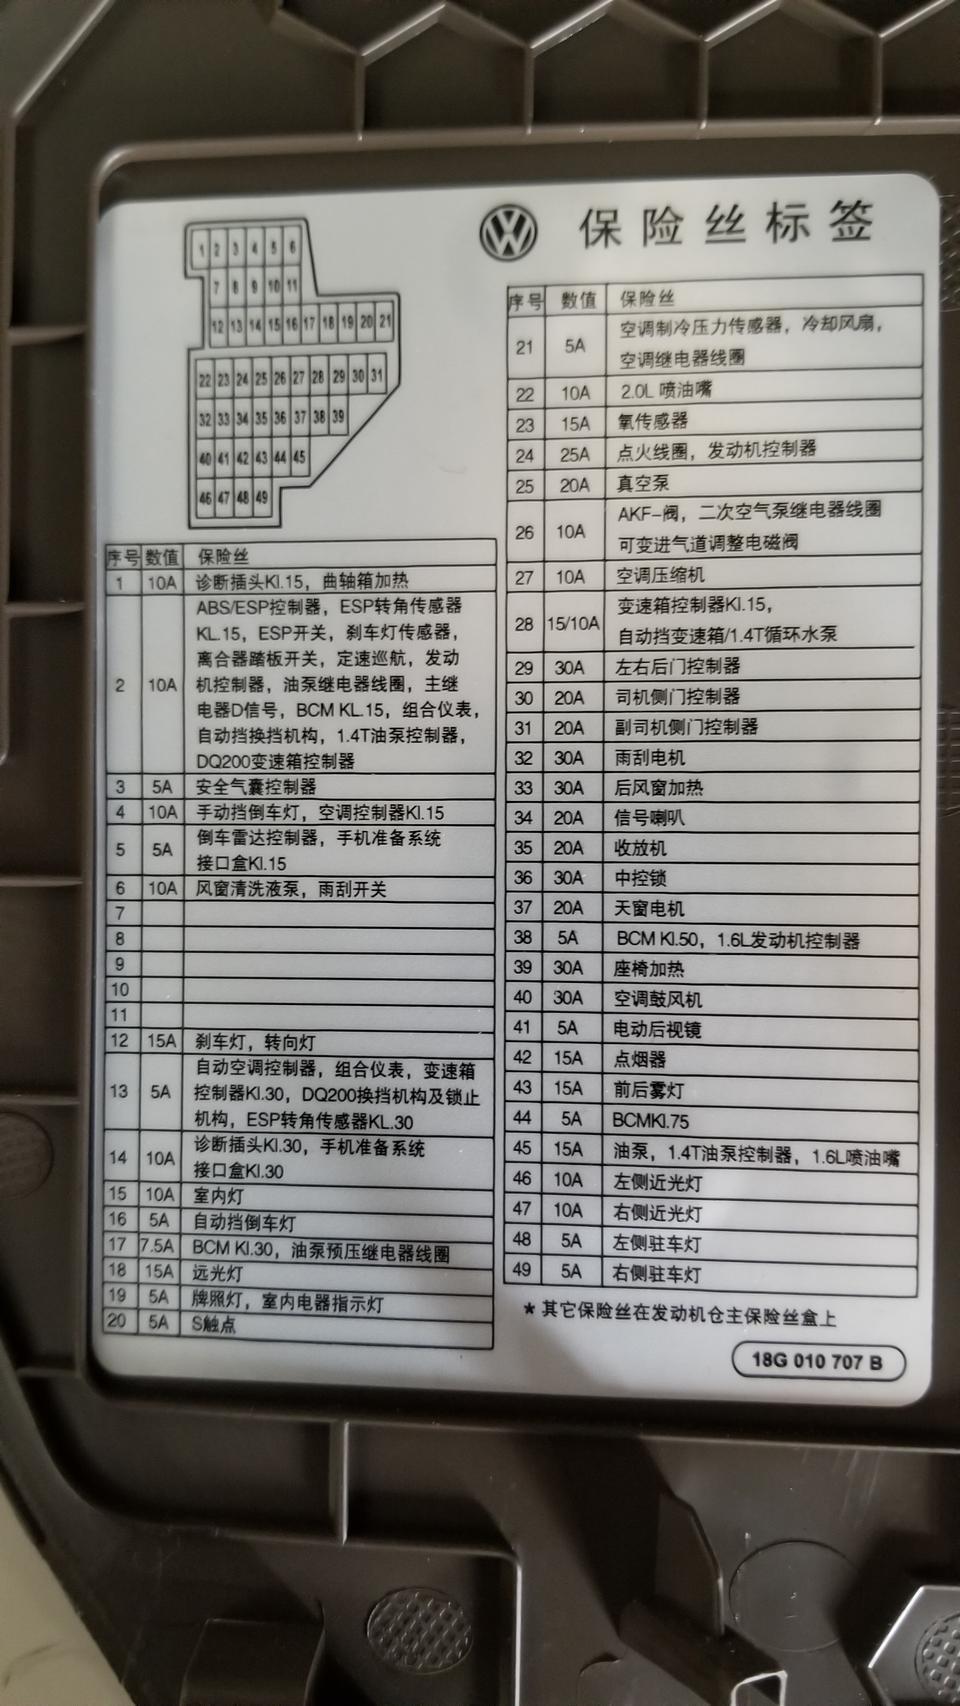 保险丝标签
1 2 3 4 5 6
7 8 9 10 11
12 13 14 15 16 17 18 19 20 21
22 23 24 25 26 27 28 29 30 31
32 33 34 35 36 37 38 39
40 41 42 43 44 45
46 47 48 49
序号 数值 保险丝
1 10A 诊断插头Kl.15，曲轴箱加热
2 10A ABS/ESP控制器，ESP转角传感器
KL.15，ESP开关，刹车灯传感器，
离合器踏板开关，定速巡航，发动
机控制器，油泵继电器线圈，主继
电器D信号，BCM KL.15，组合仪表，
自动挡换挡机构，1.4T油泵控制器，
DQ200变速箱控制器
3 5A 安全气囊控制器
4 10A 手动挡倒车灯，空调控制器Kl.15
5 5A 倒车雷达控制器，手机准备系统
接口盒Kl.15
6 10A 风窗清洗液泵，雨刮开关
7
8
9
10
11
12 15A 刹车灯，转向灯
13 5A 自动空调控制器，组合仪表，变速箱
控制器Kl.30，DQ200换挡机构及锁止
机构，ESP转角传感器KL.30
14 10A 诊断插头Kl.30，手机准备系统
接口盒Kl.30
15 10A 室内灯
16 5A 自动挡倒车灯
17 7.5A BCM Kl.30，油泵预压继电器线圈
18 15A 远光灯
19 5A 牌照灯，室内电器指示灯
20 5A S触点
序号 数值 保险丝
21 5A 空调制冷压力传感器，冷却风扇，
空调继电器线圈
22 10A 2.0L 喷油嘴
23 15A 氧传感器
24 25A 点火线圈，发动机控制器
25 20A 真空泵
26 10A AKF-阀，二次空气泵继电器线圈
可变进气道调整电磁阀
27 10A 空调压缩机
28 15/10A 变速箱控制器Kl.15，
自动挡变速箱/1.4T循环水泵
29 30A 左右后门控制器
30 20A 司机侧门控制器
31 20A 副司机侧门控制器
32 30A 雨刮电机
33 30A 后风窗加热
34 20A 信号喇叭
35 20A 收放机
36 30A 中控锁
37 20A 天窗电机
38 5A BCM Kl.50，1.6L发动机控制器
39 30A 座椅加热
40 30A 空调鼓风机
41 5A 电动后视镜
42 15A 点烟器
43 15A 前后雾灯
44 5A BCMKl.75
45 15A 油泵，1.4T油泵控制器，1.6L喷油嘴
46 10A 左侧近光灯
47 10A 右侧近光灯
48 5A 左侧驻车灯
49 5A 右侧驻车灯
* 其它保险丝在发动机仓主保险丝盒上
18G 010 707 B